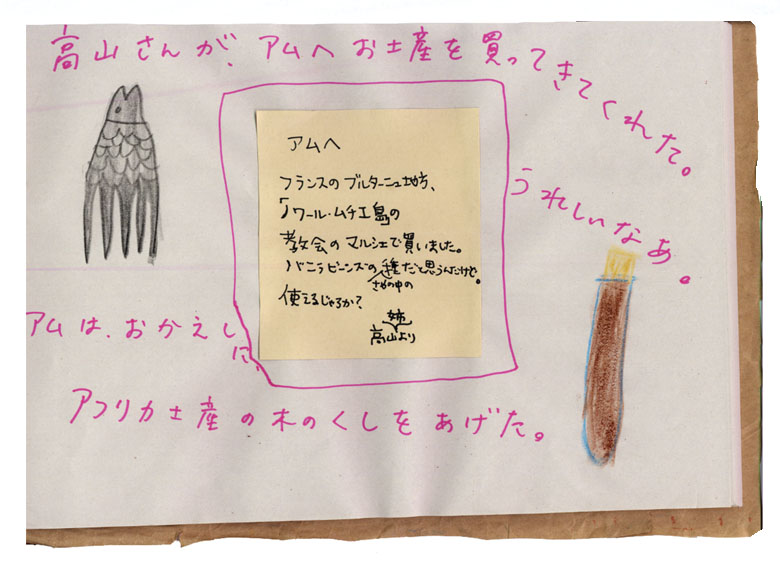 高山さんが、アムへお土産を買ってきてくれた。
うれしいなあ。
アムへ
フランスのブルターニュ地方、
「ノワール・ムチエ島」の
教会のマルシェで買いました。
バニラビーンズの種だと思うんだけど。
さやの中の
使えるじゃろか?
姉
高山より
アムは、おかえし
に、
アフリカ土産の木のくしをあげた。